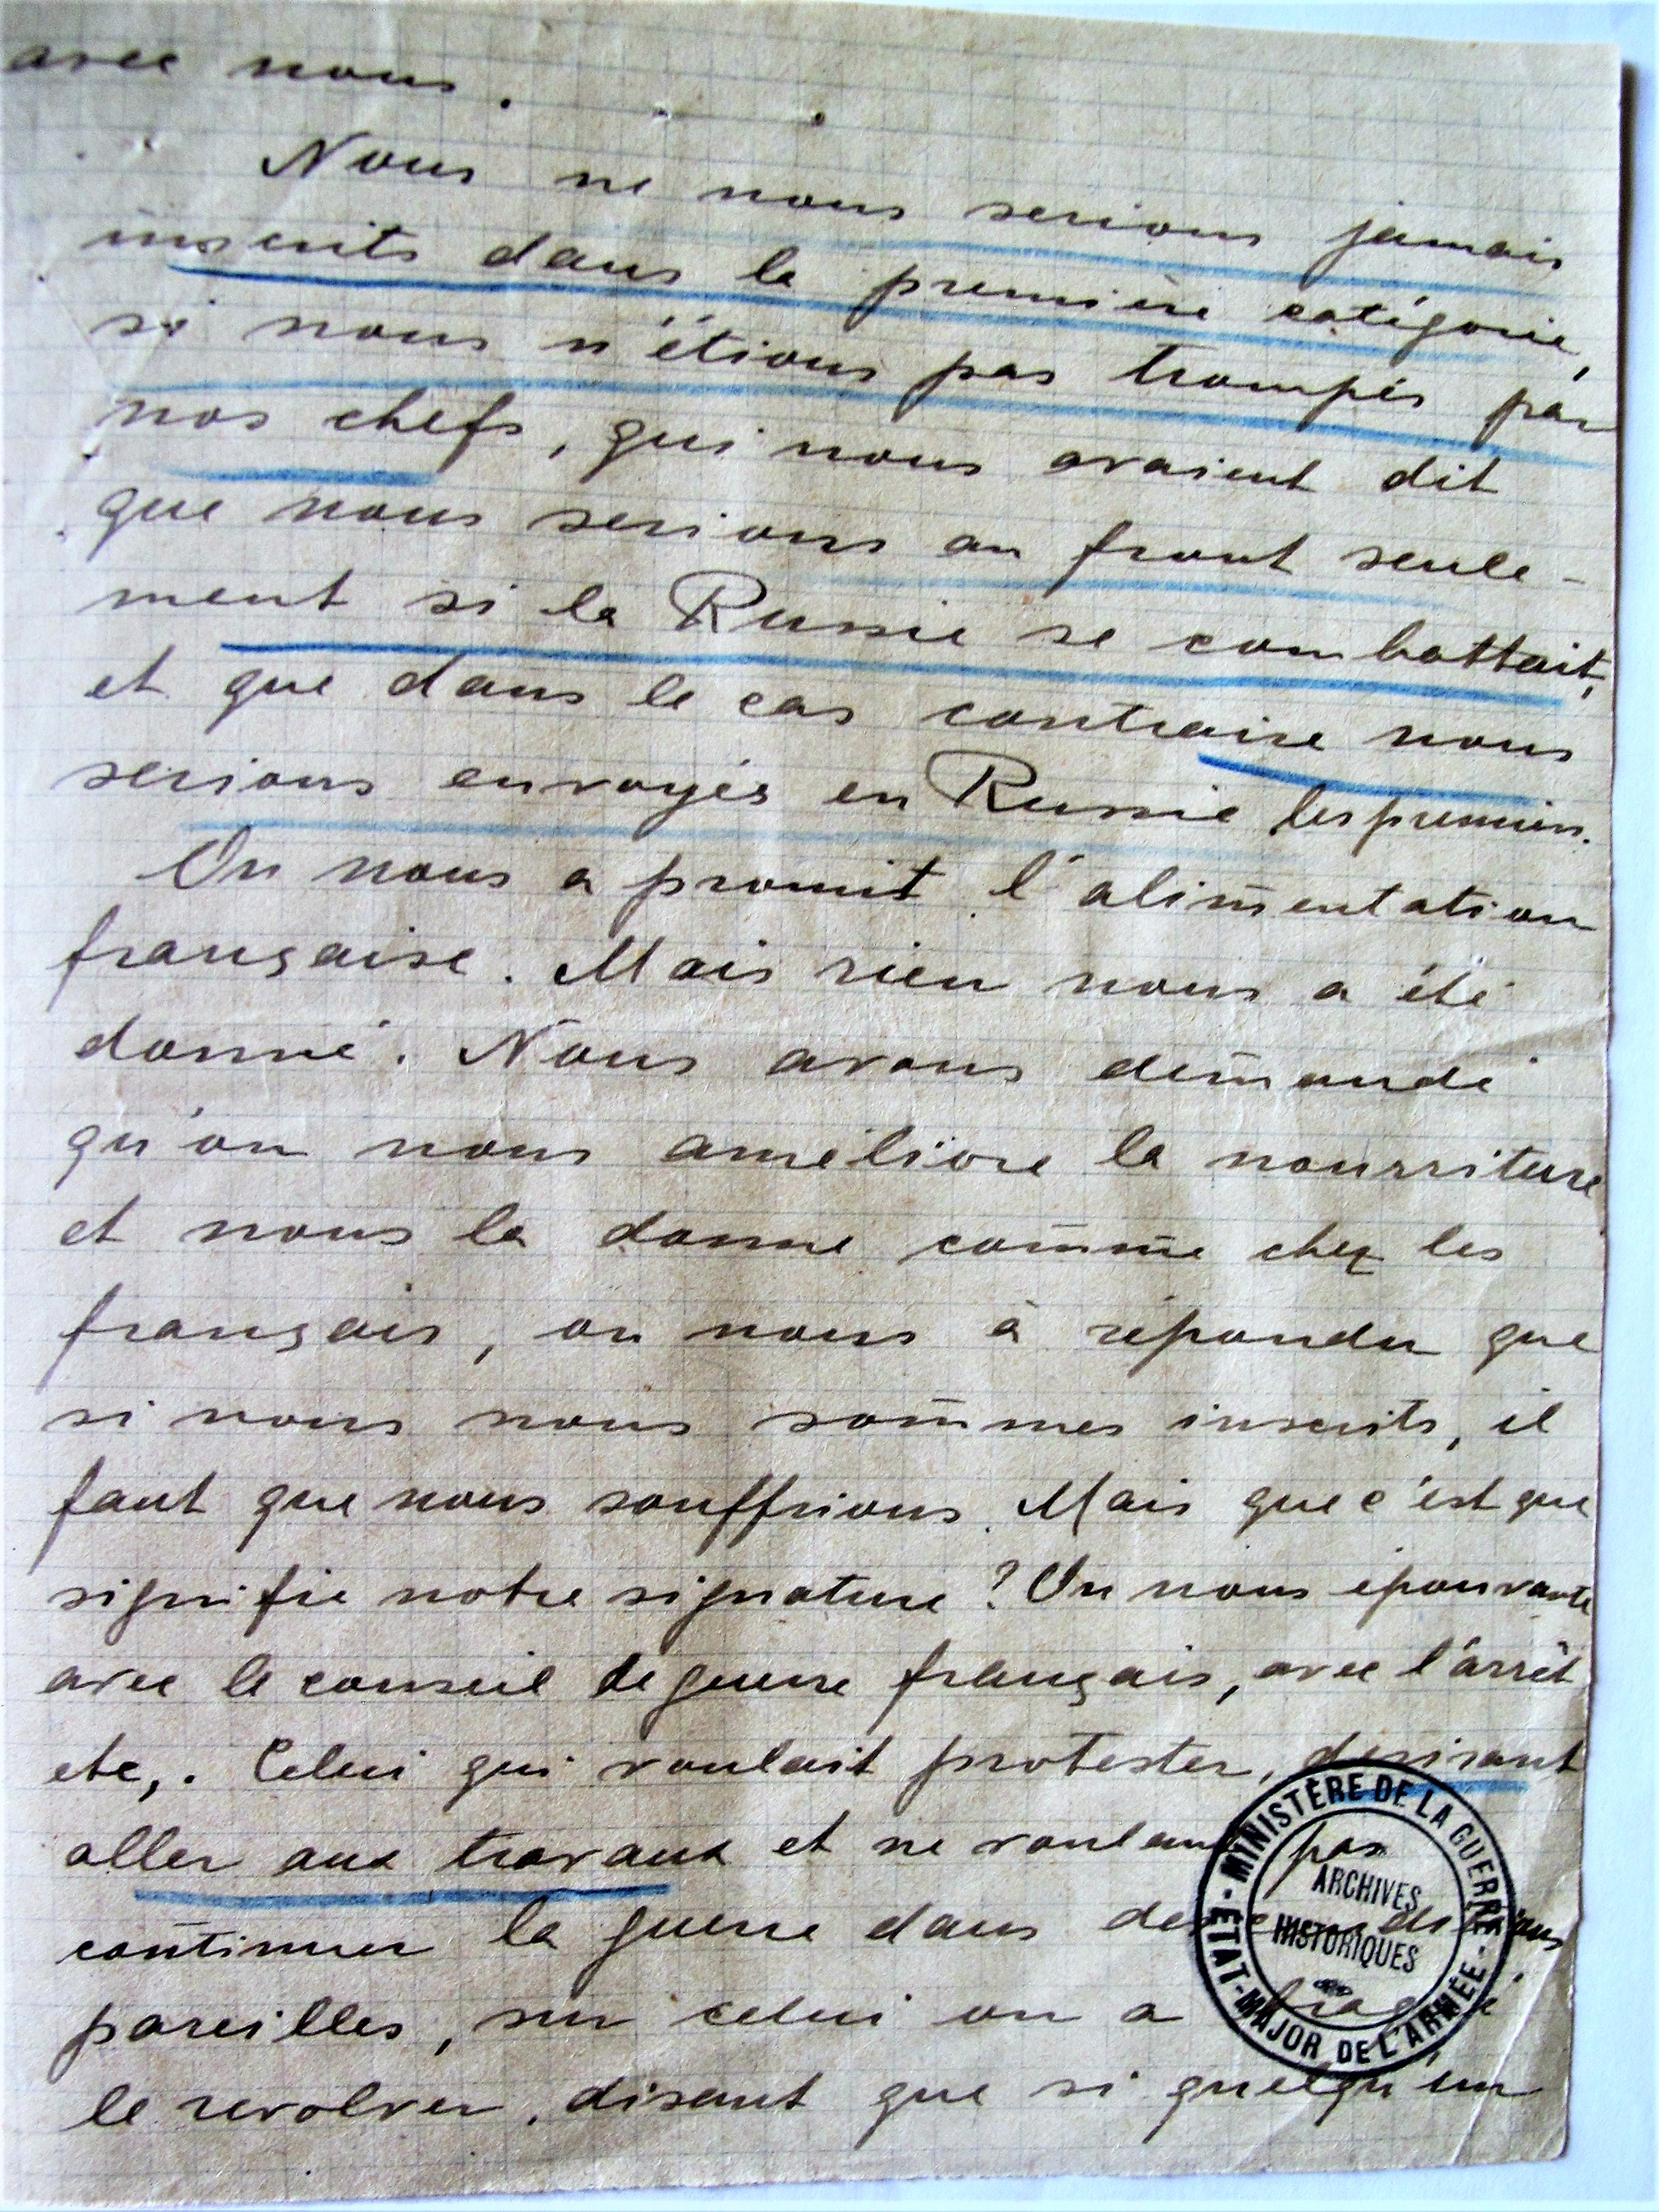 avec nous.
Nous ne nous serions jamais
inscrits dans la première catégorie,
si nous n'étions pas trompés par
nos chefs, qui nous avaient dit
que nous serions au front seule-
ment si la Russie se combattait,
et que dans le cas contraire nous
serions envoyés en Russie les premiers.
On nous a promit l'alimentation
française. Mais rien nous a été
donné. Nous avons demandé
qu'on nous améliore la nourriture
et nous la donne comme chez les
français, on nous à répondu que
si nous nous sommes inscrits, il
faut que nous souffrions. Mais que c'est que
signifie notre signature? On nous épouvante
avec le conseil de guerre français, avec l'arrêt
etc,. Celui qui voulait protester, desirant
aller aux travaux et ne voulant pas
continuer la guerre dans des conditions
pareilles, sur celui on a braqué
le revolver, disant que si quelqu'un
MINISTÈRE DE LA GUERRE
ARCHIVES
HISTORIQUES
ÉTAT-MAJOR DE L'ARMÉE